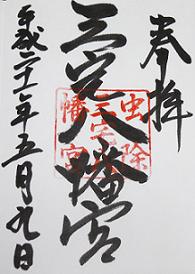 奉拝
三宅八幡宮
虫除
三宅八
幡宮
平成二十一年五月九日